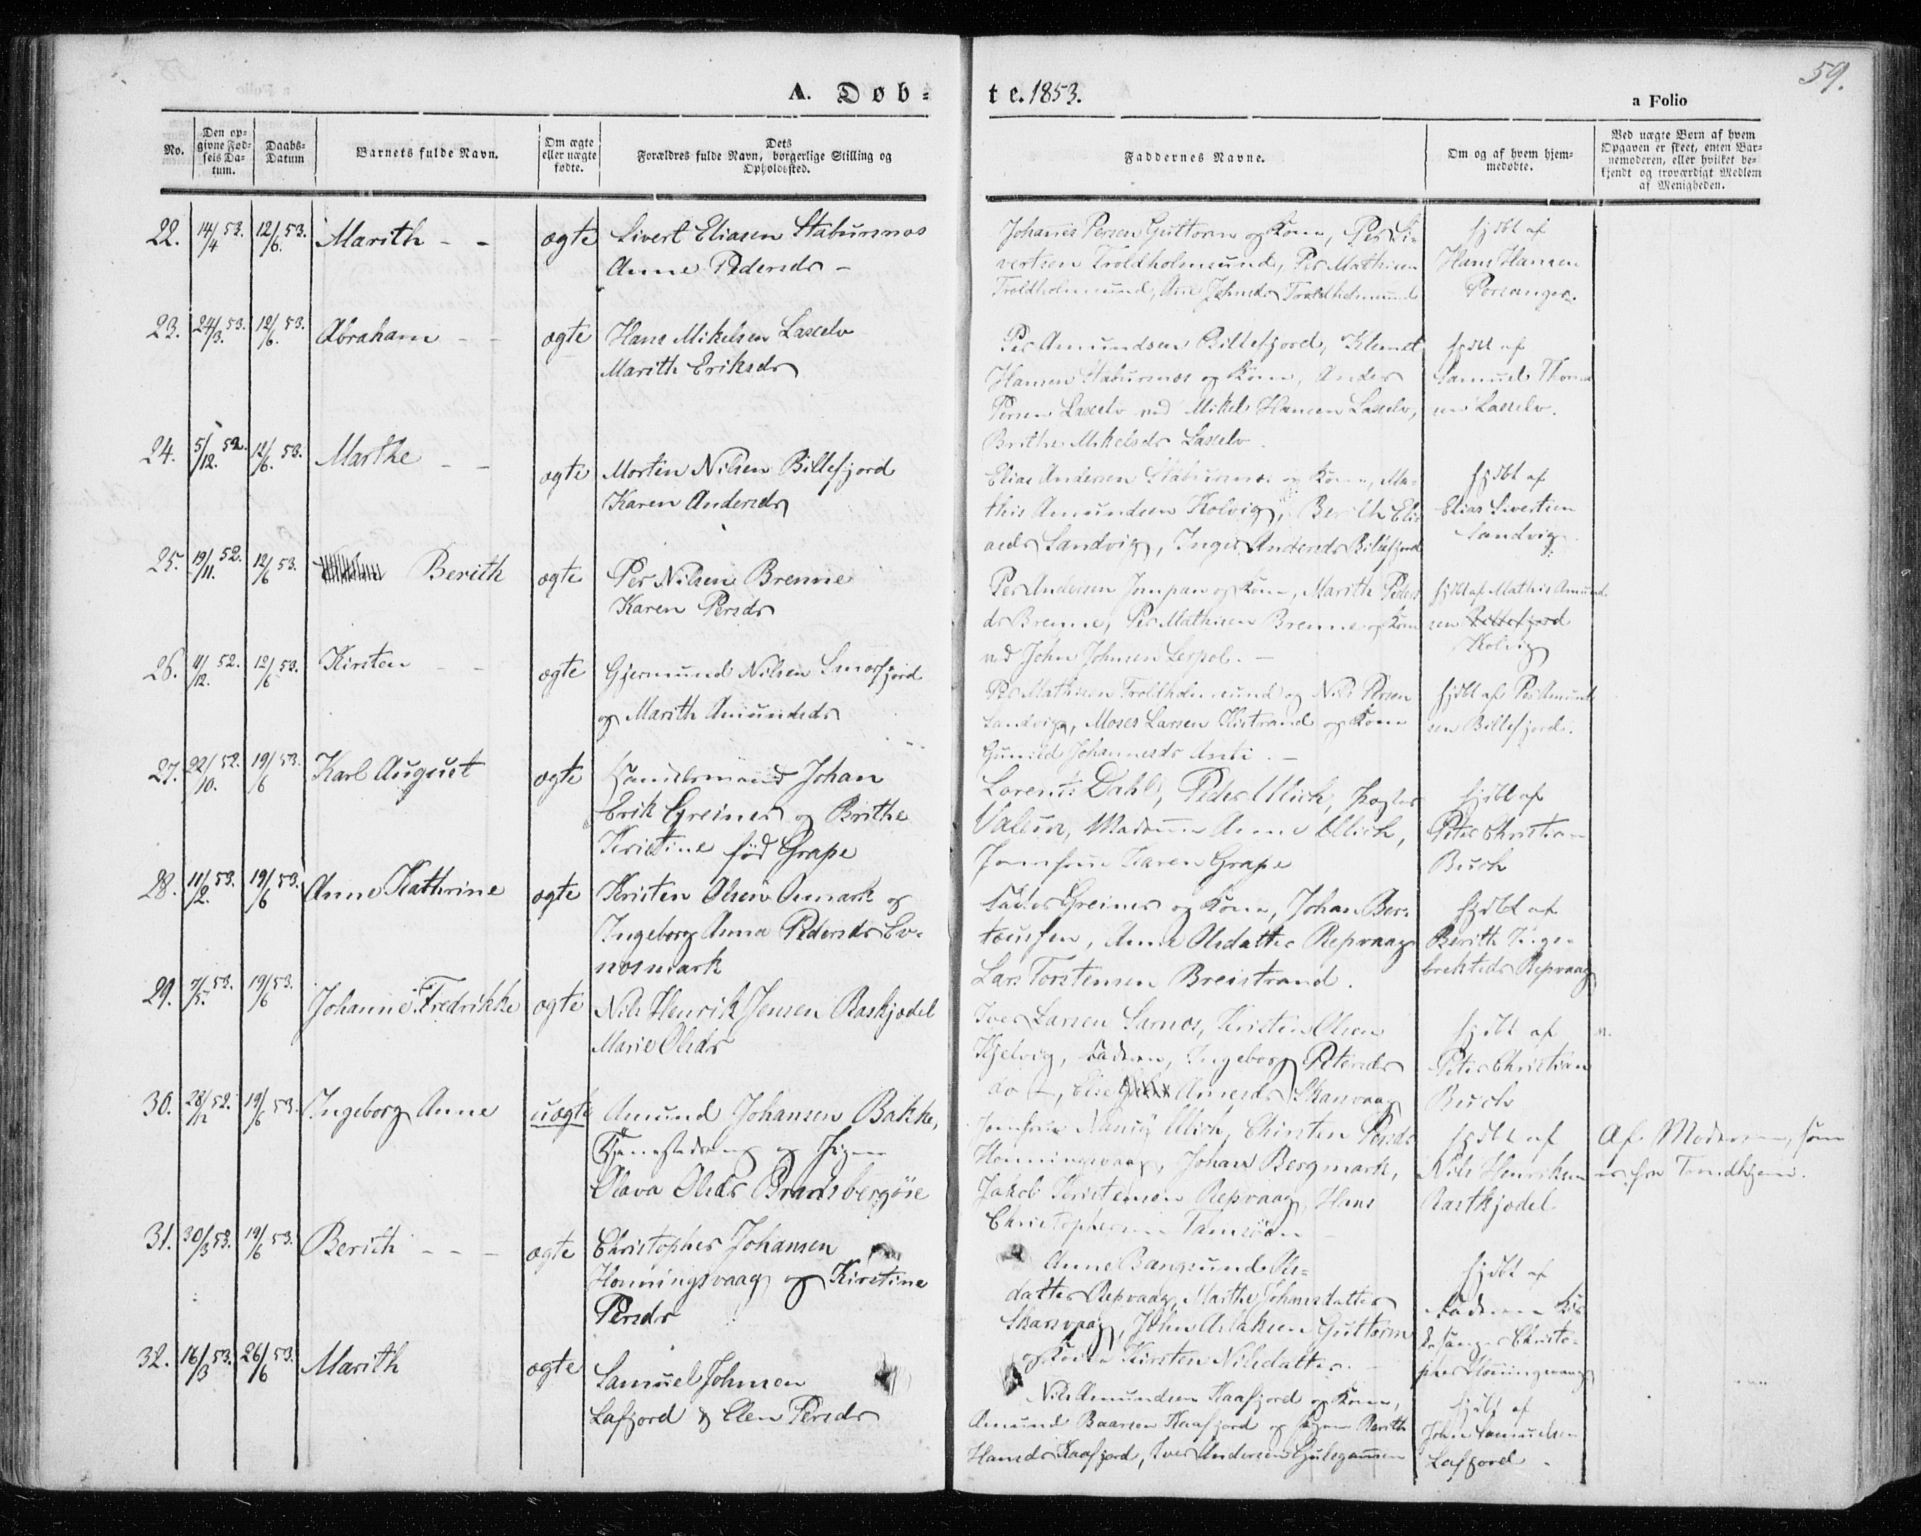 59.
A. Døb-
te. 1853.
a Folio
No.
Den op-
givne Fød-
sels Da-
tum.
Daabs-
Datum
Barnets fulde Navn.
Om ægte
eller uægte
fødte.
Dets
Forældres fulde Navn, borgerlige Stilling og
Opholdssted.
Faddernes Navne.
Om og af hvem hjem-
medøbte.
Ved uægte Børn af hvem
Opgaven er skeet, enten Bar-
nemoderen, eller hvilket be-
kjendt og troværdigt Medlem
af Menigheden.
22. 14/4 53. 12/6 53. Marith - - ægte
Sivert Eliasen Stabursnæs
Anne Pedersdr -
Johanes Persen Guttorm og Kone, Per Si-
vertsen Troldholmsund, Per Mathisen
Troldholmsund, Ane Johnsdr Troldholmsund
hjdbt af
Hans Hansen
Porsanger.
23. 24/3 53. 12/6 53. Abraham - - ægte
Hans Mikelsen Laxelv
Marith Eriksdr
Per Amundsen Billefjord, Klemet
Hansen Stabursnæs og Kone, Anders
Persen Laxelv ved Mikel Hansen Laxelv,
Brithe Mikelsdr Laxelv.
hjdbt af
Samuel Thoma
sen Laxelv.
24. 5/12 52. 12/6 53. Marthe - - ægte
Morten Nilsen Billefjord
Karen Andersdr
Elias Andersen Stabursnæs og Kone, Ma-
this Amundsen Kolvig, Berith Elia
sedr Sandvig, Inger Andersdr Billefjord
hjdbt af
Elias Sivertsen
Sandvig.
25. 19/11 52. 12/6 53. Berith ægte
Per Nilsen Brenne
Karen Persdr
Per Andersen Jompan og Kone, Marith Peders
dr Brenne, Per Mathisen Brenne og Kone
ved John Johnsen Lerpol. -
hjdbt af Mathis Amund
sen Billefjord
Kolvig
26. 4/12 52. 12/6 53. Kirsten - - ægte
Gjermund Nilsen Smørfjord
og Marith Amundsdr
Per Mathisen Troldholmsund og Nils Persen
Sandvig, Moses Larsen Kistrand og Kone
Gunild Johannesdr Anti. -
hjdbt af Per Amund
sen Billefjord.
27. 22/10 52. 19/6 53. Karl August ægte
Handelsmand Johan
Erik Greiner og Brithe
Kristine fød Grape
Lorents Dahl, Peder Ulich, Fogter
Valeur, Madamme Anne Ulich,
Jomfrue Karen Grape
hjdbt af
Peter Christian
Buch
28. 11/2 53. 19/6 53. Anne Kathrine ægte
Kristen Olsen Anmark og
Ingeborg Anna Pedersdr Ev-
nosmark
Fader Greiner og Kone, Johan Ber-
teusen, Anne Olsdatter Repvaag
Lars Torstensen Breistrand.
hjdbt af
Berith Inge-
brektsdr Repvaag
29. 7/5 53. 19/6 53. Johanne Fredrikke ægte
Nils Henrik Jensen Raskjødel
Marie Olsdr
Iver Larsen Sarnæs, Kristen Olsen
Kjelvig, Faderen, Ingeborg Petersdr
do -, Else Amesdr Skarvaag
hjdbt af
Peter Christian
Buch
30. 28/12 52. 19/6 53. Ingeborg Anne uægte
Amund Johansen Bakke,
Tjenestedreng og Pigen
Olava Olsdr
Jomfrue Nancy Ulich, Chirsten Persdr
Honningsvaag, Johan Bergmark,
Jakob Kristensen Repvaag, Hans
Christophersen Tamsøen
hjdbt af
Nils Henriksen
Rastkjødel
Af Moderen, som
er fra Trondhjem.
31. 30/3 53. 19/6 53. Berith - - - ægte
Christopher Johansen
Honningsvaag og Kirstine
Persdr
Anne Bangsund Ols-
datter Repvaag, Marthe Johansdatter
Skarsvaag, John Aslaksen Guttorm
og Kone Kirsten Nilsdatter. -
hjdbt af
Faderen Kir
kesanger Christo-
pher Honningsvaag
32. 16/3 53. 26/6 53. Marith ægte
Samuel Johnsen
Lafjord & Elen Persdr
Nils Amundsen Kaafjord og Kone,
Amund Baarsen Kaafjord og Pigen Berith
Hansdr Kaafjord, Iver Andersen Gjulegamsen
hjdbt af
John Samuelsen
Lafjord -